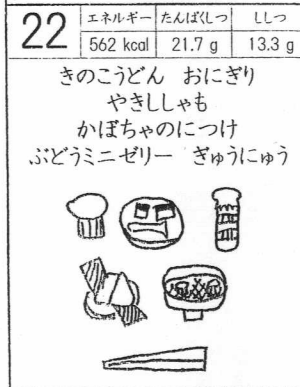 22 エネルギー たんぱくしつ ししつ
562 kcal 21.7 g 13.3 g
きのこうどん おにぎり
やきししゃも
かぼちゃのにつけ
ぶどうミニゼリー ぎゅうにゅう